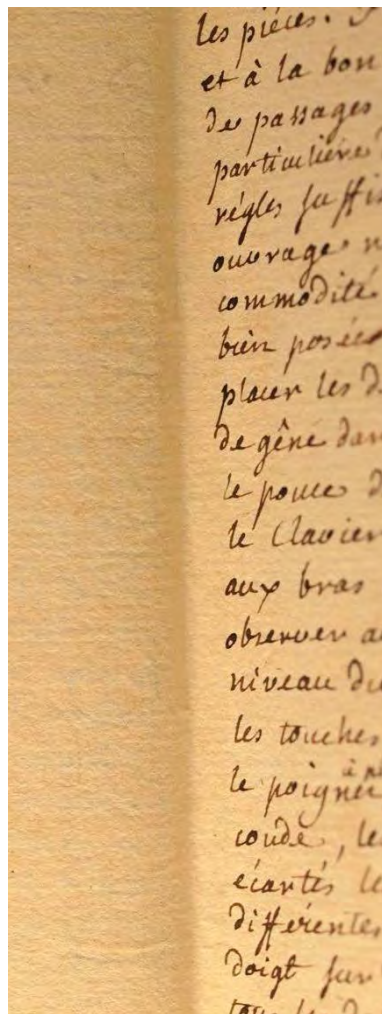 les piéces.
et à la bon
de passages
particulière
régles suffis
ouvrages n
commodité
bien posée
placer les d
de gêne dan
le pouce d
le Clavier
aux bras
observer au
niveau du
les touches
le poignet
coude, le
écartés le
différentes
doigt sur